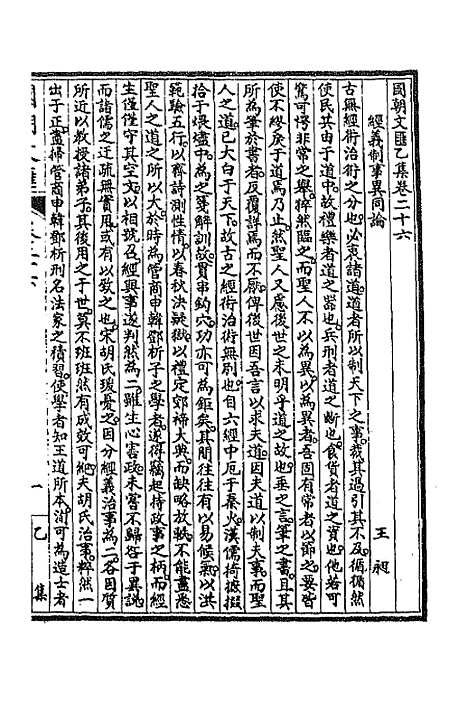 國朝文匯乙集卷二十六
經義制事異同論
王昶
古無經術治術之分也必衷諸道道者所以制天下之事裁其過引其不及循循然
使民共由于道中故禮樂者道之器也兵刑者道之斷也食貨者道之資也他若可
驚可愕非常之舉猝然臨之而聖人不以為異以為異者吾固有常者以節之要皆
使不終戾于道焉乃止然聖人又慮後世之未明乎道之故也垂之言筆之書且其
所為筆於書者反覆詳焉而不厭俾後世因吾言以求夫道因夫道以制夫事而聖
人之道已大白于天下故古之經術治術無別也自六經中厄于秦火漢儒掎摭掇
拾于煨燼中為之箋解訓故貫串鈎穴功亦可為鉅矣其間往往有以易候氣以洪
範驗五行以齊詩測性情以春秋決疑獄以禮定郊禘大典而缺略放軼不能盡悉
聖人之道之所以大於時為管商申韓鄧析子之學者遂得竊起持政事之柄而經
生僅僅守其空文以相號召經與事遂判然為二雖生心害政未嘗不歸咎于異說
而諸儒之迂疏無實用或有以致之也宋胡氏瑗憂之因分經義治事為二各因質
所近以教授諸弟子其後用之于世莫不班班然有成效可紀夫胡氏治事粹然一
出于正盡掃管商申韓鄧析刑名法家之積習使學者知王道所本洵可為造士者
國朝文匯
一
乙集